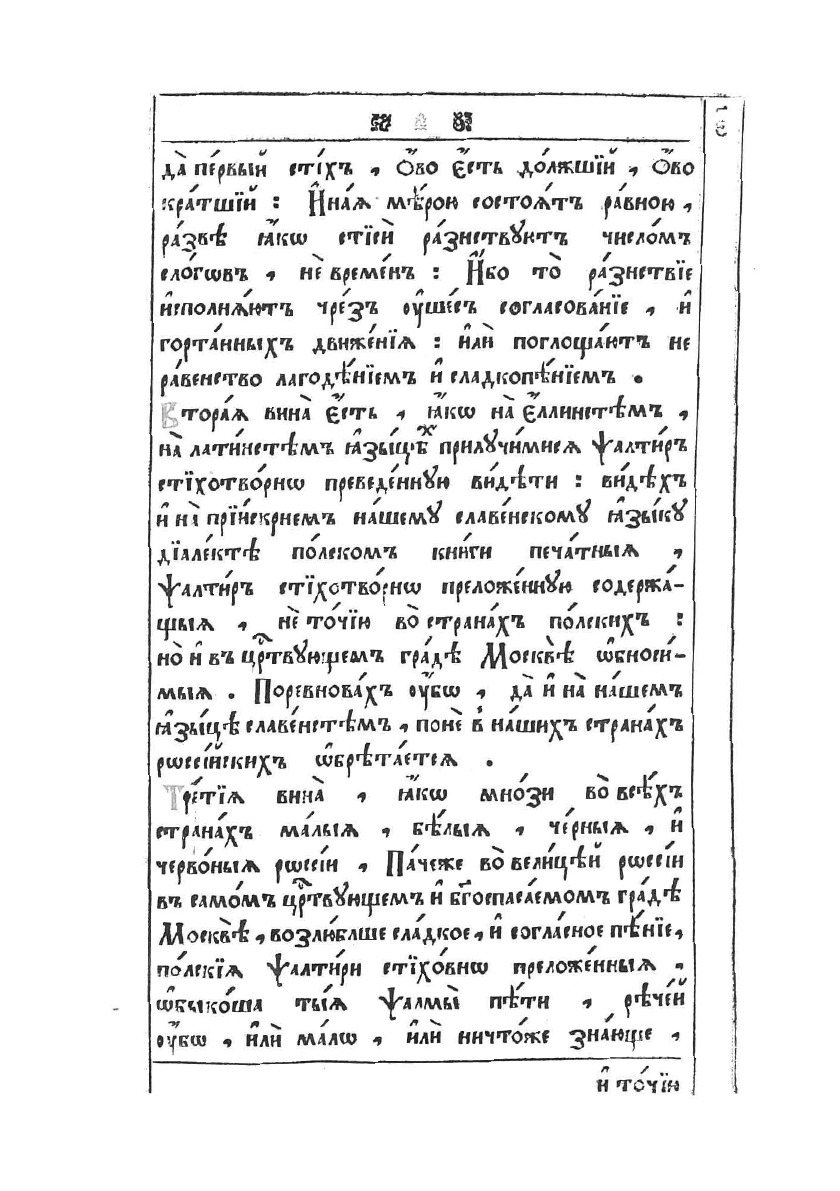 да̀ пе́рвый сті́хъ , Ѻ҆́во Є҆́сть до́лжшїй , Ѻ҆́во
кра́тшїй : И҆на́ѧ мѣ́рою состоѧ́тъ ра́вною ,
ра́звѣ ꙗ҆́кѡ стїсѝ ра́знствꙋютъ число́мъ
сло́гѡвъ , нѐ време́нъ : И҆́бо то̀ ра́знствїе
и҆сполнѧ́ютъ чре́зъ ᲂу҆ше́съ согласова́нїе , и҆
горта́нныхъ движе́нїѧ : и҆лѝ поглоща́ютъ не
ра́венство лагодѣ́нїемъ и҆ сладкопѣ́нїемъ .
Втора́ѧ вина̀ Є҆́сть , ꙗ҆́кѡ на̀ Є҆́ллинстѣмъ ,
на̀ лати́нстѣмъ ꙗ҆зы́цѣⷯ прилꙋчи́мисѧ ѱалти́ръ
стїхотво́рнѡ преведе́ннꙋю ви́дѣти : ви́дѣхъ
и҆ на̀ прїи́скрнемъ на́шемꙋ славе́нскомꙋ ꙗ҆зы́кꙋ
дїале́ктѣ по́лскомъ кни́ги печа́тныѧ ,
ѱалти́ръ стїхотво́рнѡ преложе́ннꙋю содержа́-
щыѧ , нѐ то́чїю во̀ страна́хъ по́лскихъ :
но̀ и҆ въ црⷭ҇твꙋющемъ гра́дѣ Москвѣ̀ ѡ҆бноси́-
мыѧ . Поревнова́хъ ᲂу҆́бѡ , да̀ и҆ на̀ на́шемъ
ꙗ҆зы́цѣ славе́нстѣмъ , понѐ в̾ на́шихъ страна́хъ
рѡссі́йскихъ ѡ҆брѣта́етсѧ .
Тре́тїѧ вина̀ , ꙗ҆́кѡ мно́зи во̀ всѣ́хъ
страна́хъ ма́лыѧ , бѣ́лыѧ , че́рныѧ , и҆
черво́ныѧ рѡссі́и , Па́чеже во̀ вели́цѣй рѡссі́и
въ само́мъ црⷭ҇твꙋющемъ и҆ бг҃оспаса́емомъ гра́дѣ
Москвѣ̀ , возлю́блше сла́дкое , и҆ согла́сное пѣ́нїе ,
по́лскїѧ ѱалти́ри стїхо́внѡ преложе́нныѧ ,
ѡ҆быко́ша ты́ѧ ѱалмы̀ пѣ́ти , рѣче́й
ᲂу҆́бѡ , и҆лѝ ма́лѡ , и҆лѝ ничто́же зна́юще ,
и҆ то́чїю